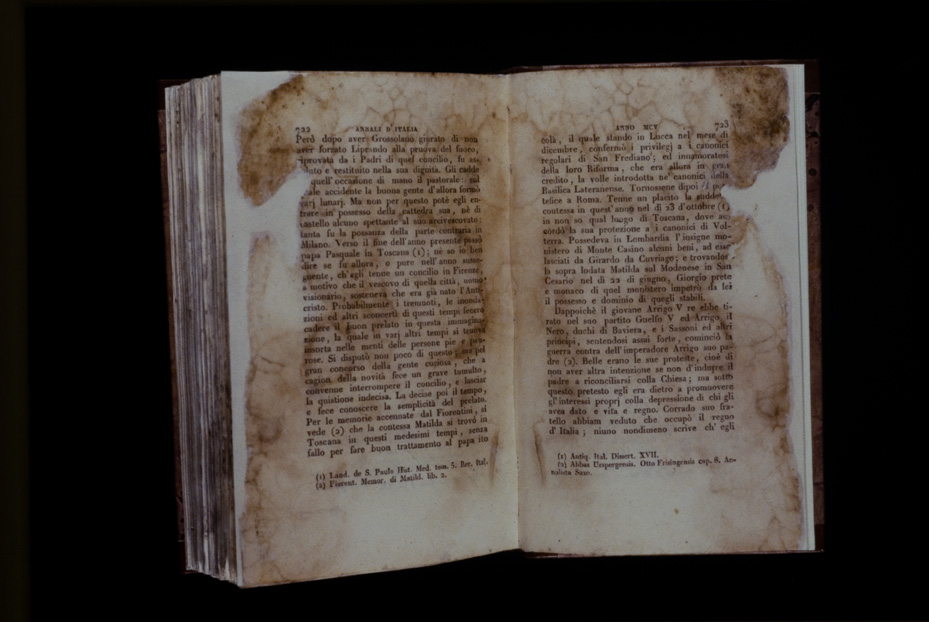 722 ANNALI D'ITALIA
Però dopo aver Grossolano giurato di non
aver forzato Liprando alla pruova del fuoco,
provata da i Padri di quel concilio, fu
e restituito nella sua dignità. Gli cadde
quell'occasione di mano il pastorale: sul
accidente la buona gente d'allora formò
varj lunarj. Ma non per questo potè egli en-
trare in possesso della cattedra sua, nè di
castello alcuno spettante al suo arcivescovato:
tanta fu la possanza della parte contraria in
Milano. Verso il fine dell'anno presente passò
papa Pasquale in Toscana (1); nè so io ben
dire se fu allora, o pure nell'anno susse-
guente, ch'egli tenne un concilio in Firenze,
a motivo che il vescovo di quella città, uomo
visionario, sosteneva che era già nato l'Anti-
cristo. Probabilmente i tremuoti, le inonda-
zioni ed altri sconcerti di questi tempi fecero
cadere il buon prelato in questa immagina-
zione, la quale in varj altri tempi si truova
insorta nelle menti delle persone pie e
rose. Si disputò non poco di questo; ma pel
gran concorso della gente curiosa, che a
cagion della novità fece un grave tumulto,
convenne interrompere il concilio, e lasciar
la quistione indecisa. La decise poi il tempo,
e fece conoscere la semplicità del prelato.
Per le memorie accennate dal Fiorentini, si
vede (2) che la contessa Matilda si trovò in
Toscana in questi medesimi tempi, senza
fallo per fare buon trattamento al papa ito
(1) Land. de S. Paulo Hist. Med. tom. 5. Rer. Ital.
(2) Fiorent. Memor. di Matild. lib. 2.
ANNO MCV 723
colà, il quale stando in Lucca nel mese di
dicembre, confermò i privilegj a i canonici
regolari di San Frediano; ed innamorato
della loro Riforma, che era allora in gran
credito, la volle introdotta ne' canonici della
Basilica Lateranense. Tornossene dipoi il
tefice a Roma. Tenne un placito la suddetta
contessa in quest'anno nel dì 23 d'ottobre (1)
in non so qual luogo di Toscana, dove
cordò la sua protezione a i canonici di Vol-
terra. Possedeva in Lombardia l'insigne mo-
nistero di Monte Casino alcuni beni, ad esso
lasciati da Girardo da Cuviago; e trovandosi
la sopra lodata Matilda sul Modenese in San
Cesario nel dì 22 di giugno, Giorgio prete
e monaco di quel monistero impetrò da lei
il possesso e dominio di quegli stabili.
Dappoichè il giovane Arrigo V re ebbe ti-
rato nel suo partito Guelfo V ed Arrigo il
Nero, duchi di Baviera, e i Sassoni ed altri
principi, sentendosi assai forte, cominciò la
guerra contra dell'imperadore Arrigo suo pa-
dre (2). Belle erano le sue proteste, cioè di
non aver altra intenzione se non d'indurre il
padre a riconciliarsi colla Chiesa; ma sotto
questo pretesto egli era dietro a promuovere
gl'interessi proprj colla depressione di chi gli
avea dato e vita e regno. Corrado suo fra-
tello abbiam veduto che occupò il regno
d'Italia; niuno nondimeno scrive ch'egli
(1) Antiq. Ital. Dissert. XVII.
(2) Abbas Urspergensis. Otto Frisingensis cap. 8. An-
nalista Saxo.